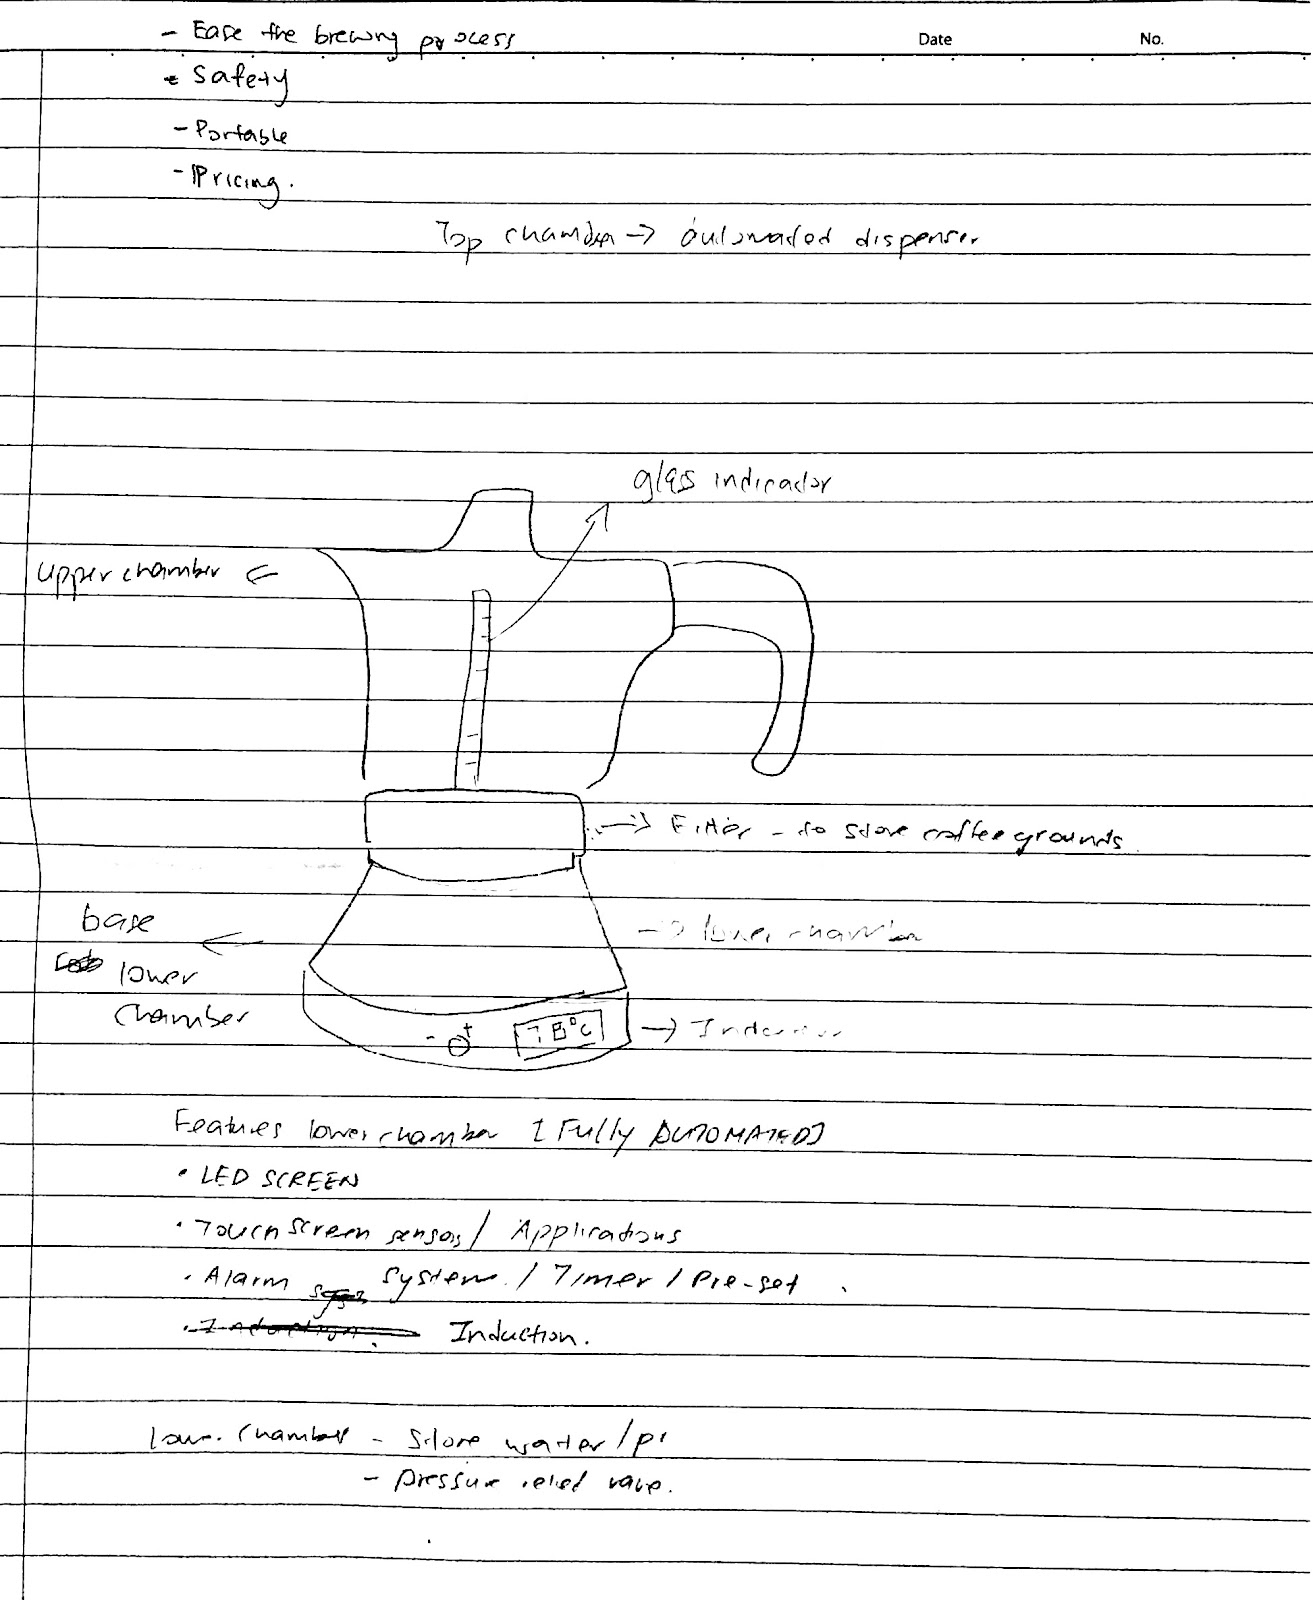 - Ease the brewing process
Date
No.
- Safety
- Portable
- Pricing.
Top chamber → automated dispenser
glass indicator
upper chamber ←
→ Filter - to store coffee grounds
base
lower
chamber
→ lower chamber
- +
78°C
→
Features lower chamber [Fully AUTOMATED]
• LED SCREEN
• Touch screen sensors / Applications
• Alarm system / Timer / Pre-set .
Induction.
low. chamber - store water /
- pressure relief valve.